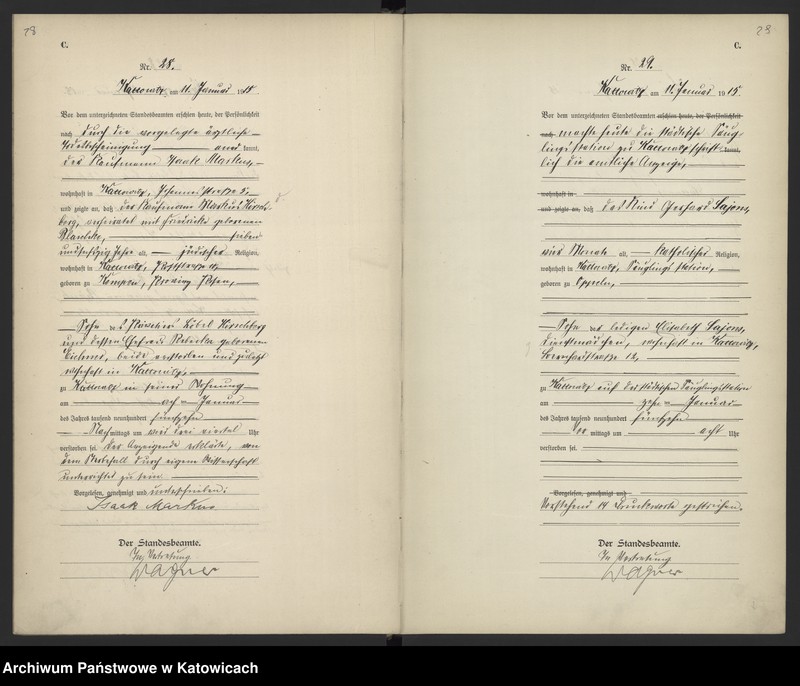 28
C.
Nr. 28.
Kattowitz am 11. Januar 1915
Vor dem unterzeichneten Standesbeamten erschien heute, der Persönlichkeit
nach durch die vorgelegte ärztliche
Todesbescheinigung anerkannt,
der Kaufmann Isaak Markus,
wohnhaft in Kattowitz,
und zeigte an, daß der Kaufmann Markus Hirsch-
berg, verheiratet mit Friederike geborenen
sieben
undsechzig Jahre alt, jüdischer Religion,
wohnhaft in Kattowitz,
geboren zu Kempen, Provinz Posen,
Sohn des Hirschberg
und dessen Ehefrau geborenen
beide verstorben und zuletzt
wohnhaft in Kattowitz,
zu Kattowitz in seiner Wohnung
am Januar
des Jahres tausend neunhundert fünfzehn
Nachmittags um drei viertel Uhr
verstorben sei. Der Anzeigende erklärte, von
dem Sterbefall durch eigene Wissenschaft
unterrichtet zu sein.
Vorgelesen, genehmigt und unterschrieben:
Isaak Markus
Der Standesbeamte.
In Vertretung
Wagner
29
C.
Nr. 29.
Kattowitz am 11. Januar 1915
Vor dem unterzeichneten Standesbeamten erschien heute, der Persönlichkeit
nach machte heute die städtische Säug-
lingsstation zu Kattowitz schrift- kannt,
lich die amtliche Anzeige,
wohnhaft in
und zeigte an, daß das Kind Gerhard Sajons,
vier Monate alt, katholischer Religion,
wohnhaft in Kattowitz, Säuglingsstation,
geboren zu Oppeln,
Sohn der ledigen Elisabeth Sajons,
Dienstmädchen, wohnhaft in Kattowitz,
12,
zu Kattowitz auf der städtischen Säuglingsstation
am zehn Januar
des Jahres tausend neunhundert fünfzehn
Vor mittags um acht Uhr
verstorben sei.
Vorgelesen, genehmigt und
Vorstehend 14 Druckworte gestrichen.
Der Standesbeamte.
In Vertretung
Wagner
Archiwum Państwowe w Katowicach